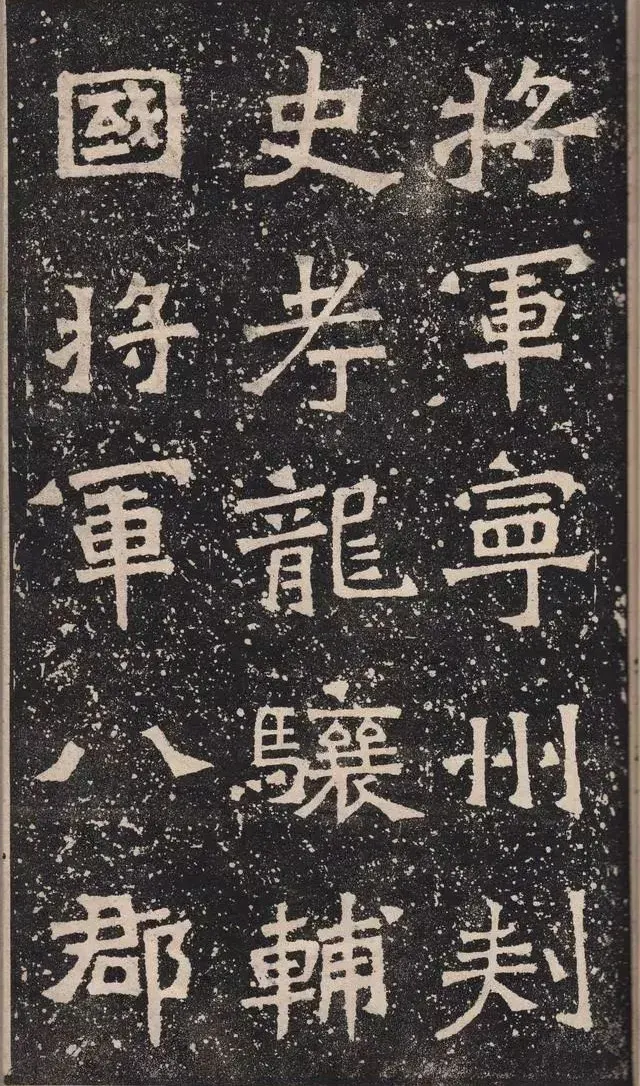 将軍寧州刾
史考龍驤輔
國将軍八郡